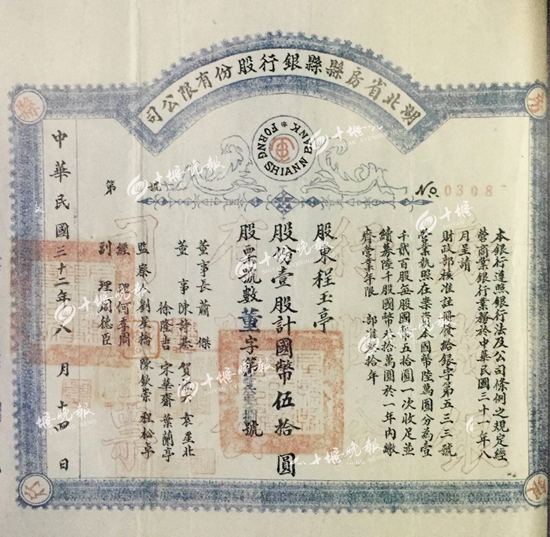 湖北省房縣縣銀行股份有限公司
FORNG SHIANN BANK
第 號
No 0308
本銀行遵照銀行法及公司條例之規定經
營商業銀行業務於中華民國三十一年八
月呈請
財政部核准註冊發給銀字第五三三號
營業執照在案資本國幣陸萬圓分為壹
千貳百股每股國幣五十圓一次收足並
續募陸千股國幣叁拾萬圓於一年內繳
齊營業年限 部准叁拾年
股東程玉亭
股份壹股計國幣伍拾圓
股票號數董字第 號
董事長蕭傑
董事陳詩基 賀 袁嶽北
徐隆吉 宋華齋 葉蘭亭
監察人劉星橋 陳欽崇 程松亭
經理何季周
副理周德臣
中華民國三十二年八月十四日
十堰晚報